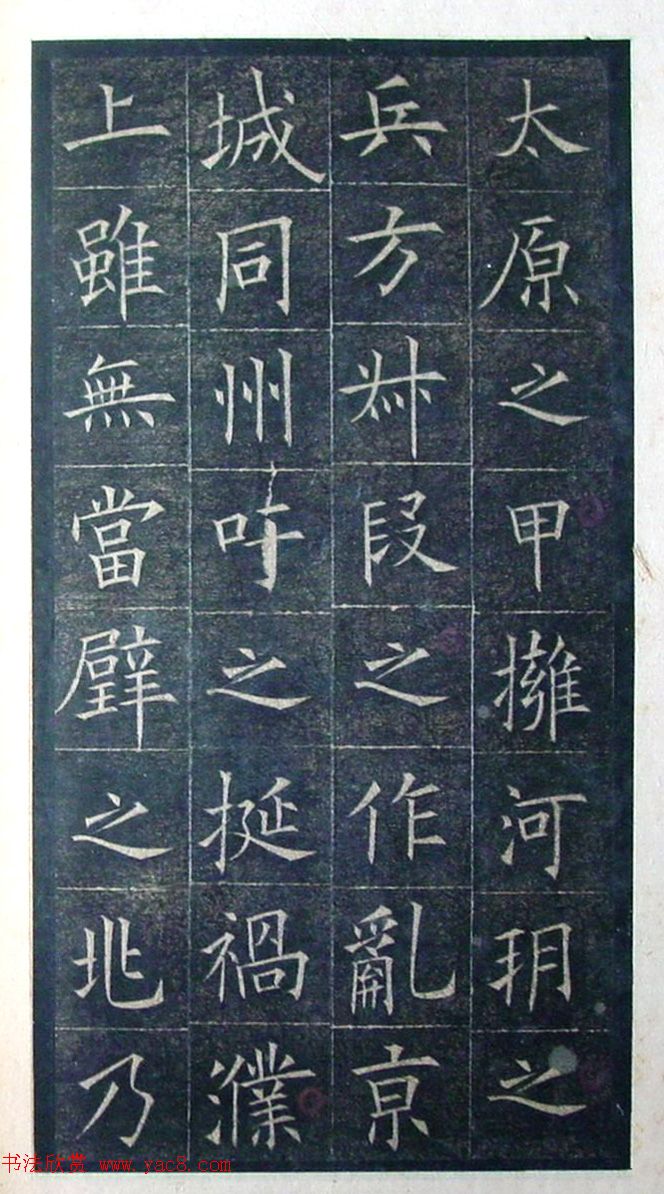 太原之甲擁河朔之
兵方叔段之作亂京
城同州吁之挺禍濮
上雖無當璧之兆乃
书法欣赏 www.yac8.com